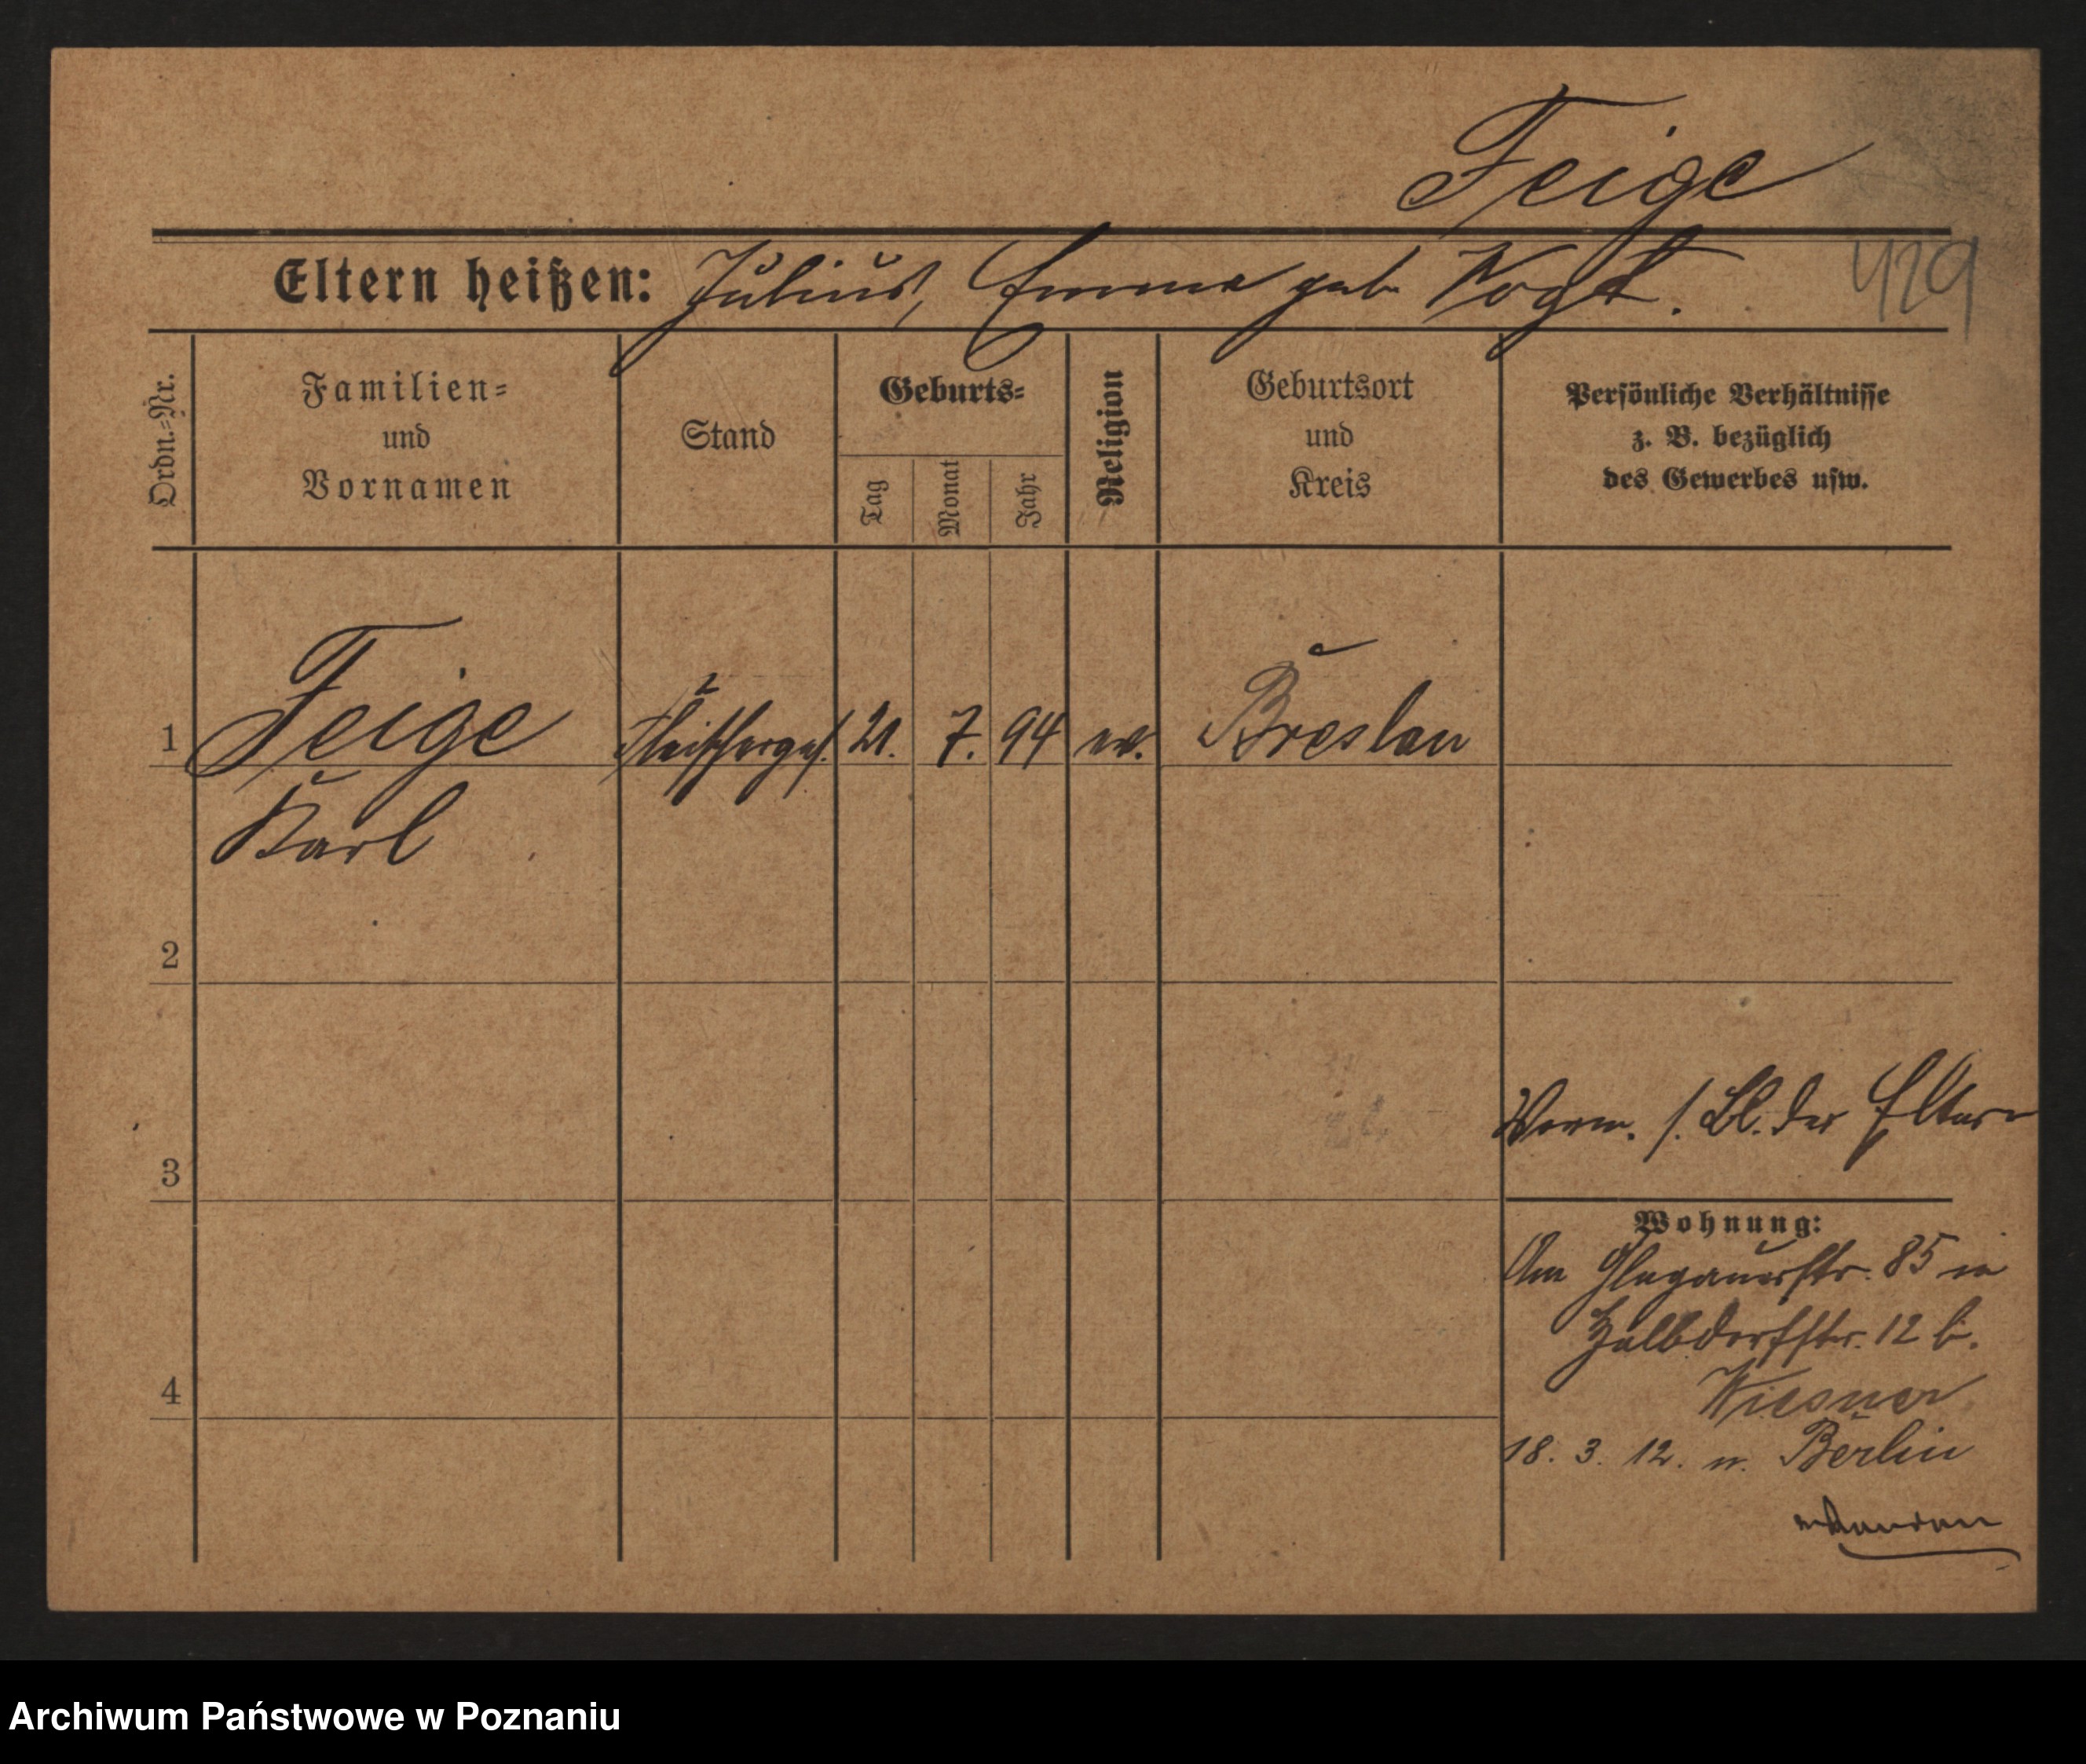 Feige
429
Eltern heißen: Julius, Emma geb. Vogt.
Ordn.-Nr.
Familien-
und
Vornamen
Stand
Geburts-
Tag
Monat
Jahr
Religion
Geburtsort
und
Kreis
Persönliche Verhältnisse
z. B. bezüglich
des Gewerbes usw.
1 Feige Fleischerges. 21. 7. 94 ev. Breslau
Karl
2
Verm. s. Bl. der Eltern
3
Wohnung:
Glogauerstr. 85 in
Halbdorfstr. 12 b.
Wiesner
4
18. 3. 12. n. Berlin
Archiwum Państwowe w Poznaniu